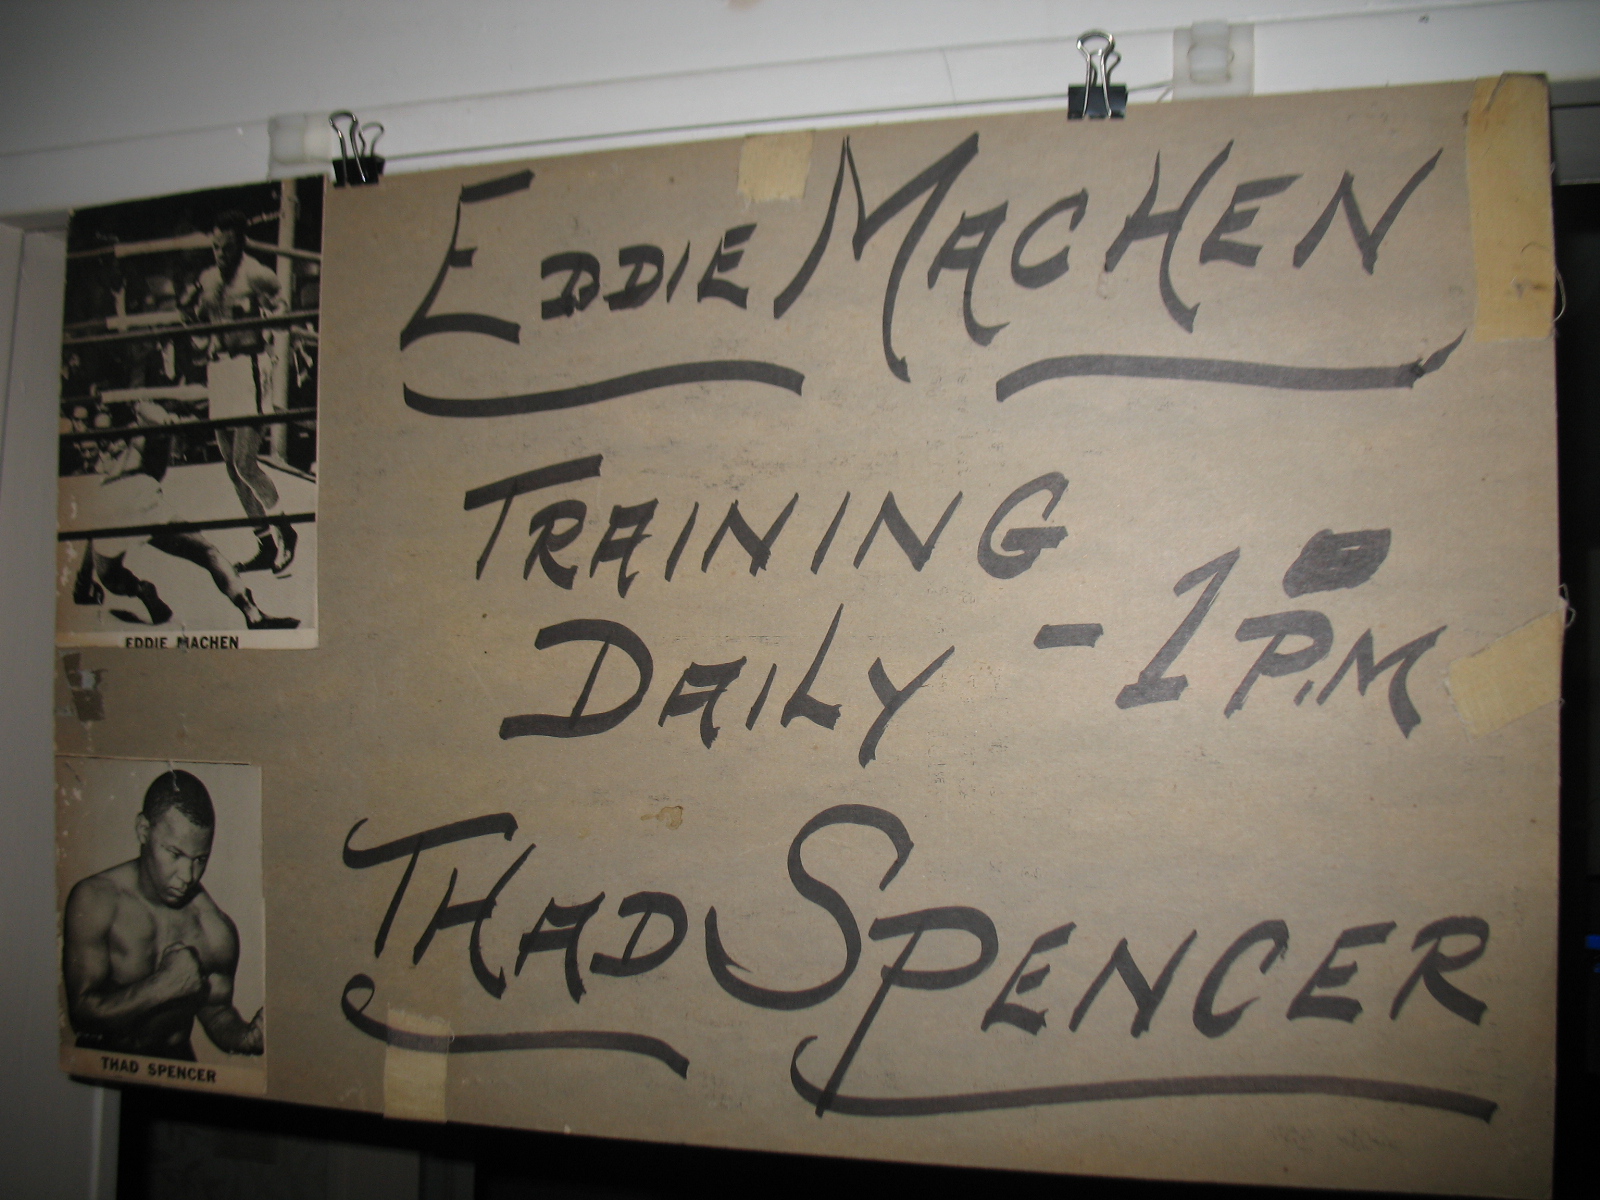 EDDIE MACHEN
TRAINING
DAILY - 1 P.M
THAD SPENCER
EDDIE MACHEN
THAD SPENCER